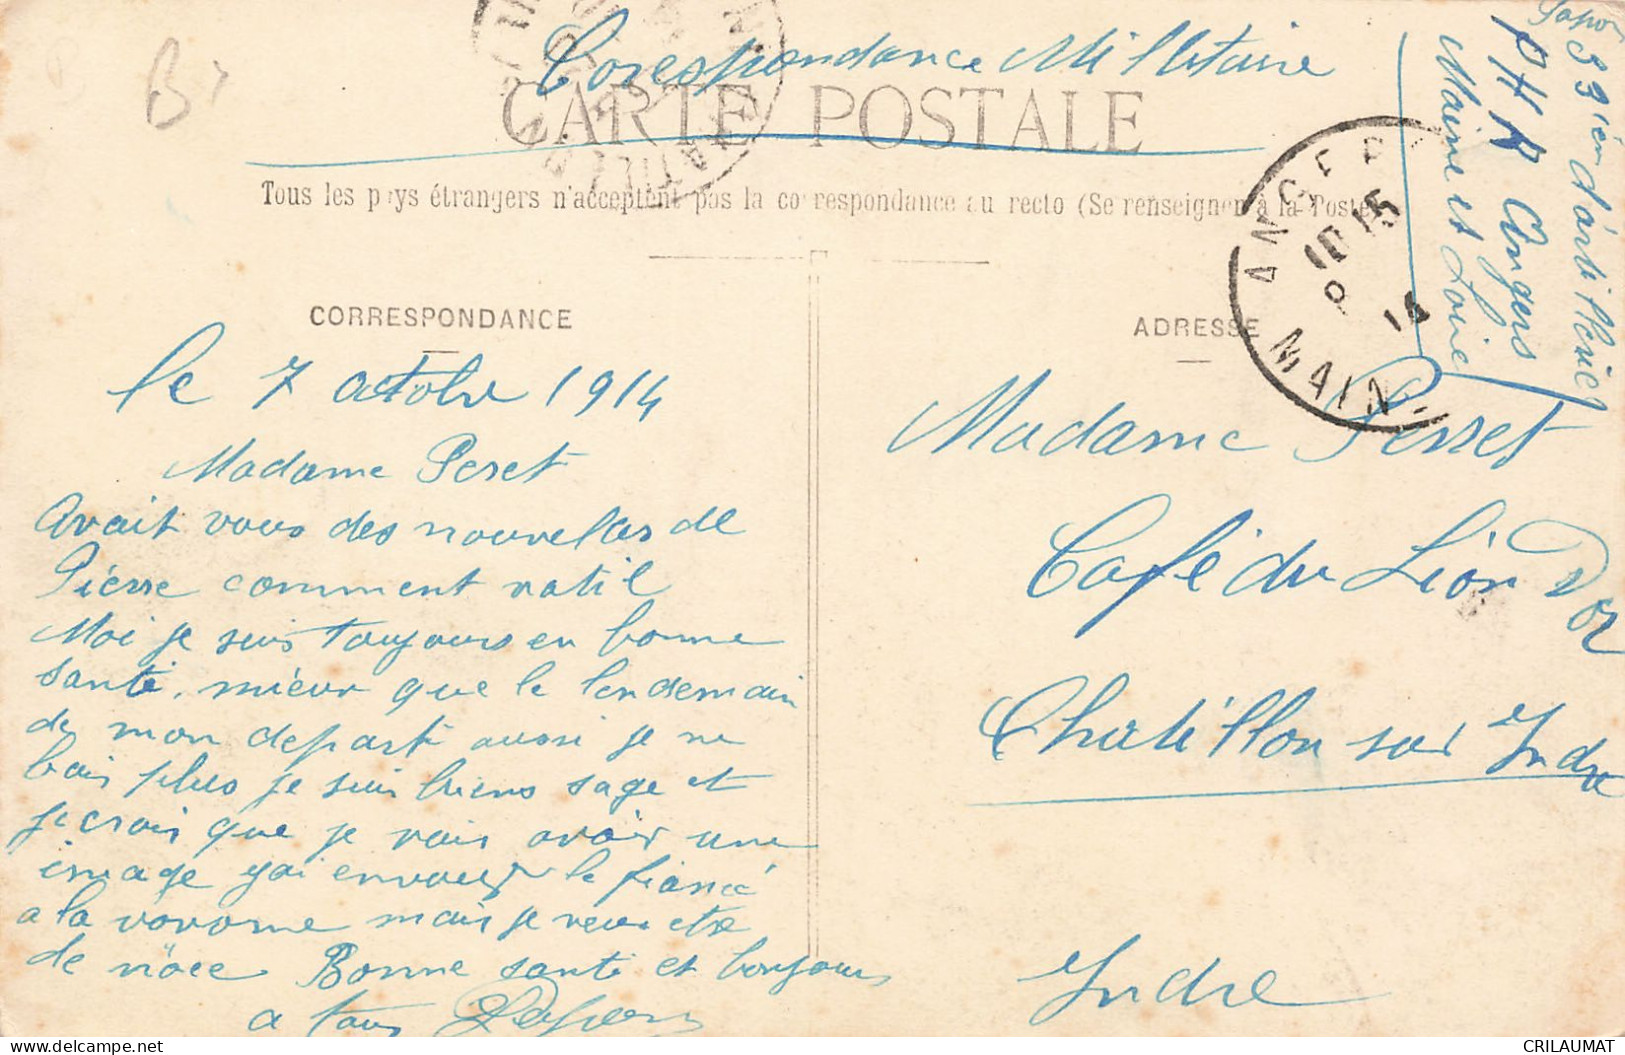 Corespondance Militaire
CARTE POSTALE
Tous les pays étrangers n'acceptent pas la correspondance au recto (Se renseigner à la Poste)
CORRESPONDANCE
le 7 octobre 1914
Madame Peret
Avait vous des nouvelles de
Piérre comment vatil
Moi je suis toujours en bonne
santé, mieux que le lendemain
de mon depart aussi je ne
bois plus je suis biens sage et
je crois que je vais avoir une
image gai envoyer le fiancé
a la mais je veux etre
de noce Bonne santé et bonjour
a tous
ADRESSE
Madame Perret
Café du Lion D'or
Chatillon sur Indre
Indre
33 ién d'artillerie
PHR Angers
Maine et Loire
ANGERS
10 15
8
14
MAINE
B
CRILAUMAT